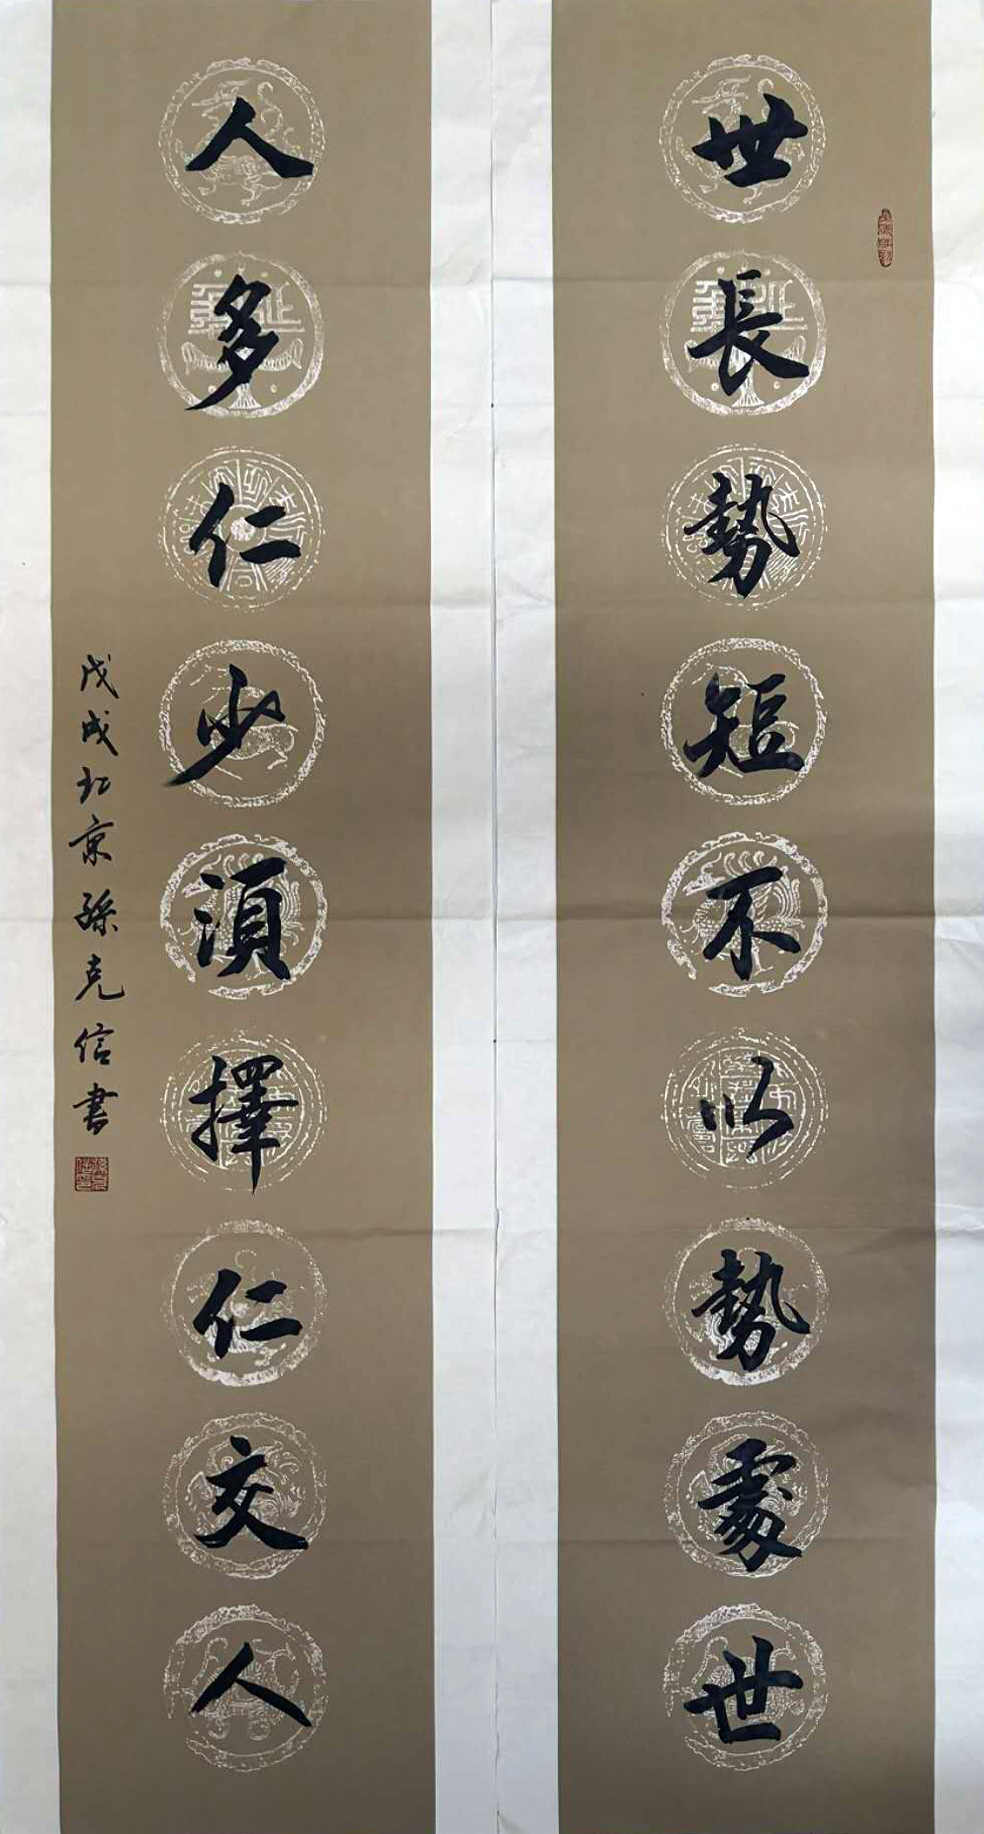 世長勢短不以勢處世
人多仁少須擇仁交人
戊戌北京孫克信書